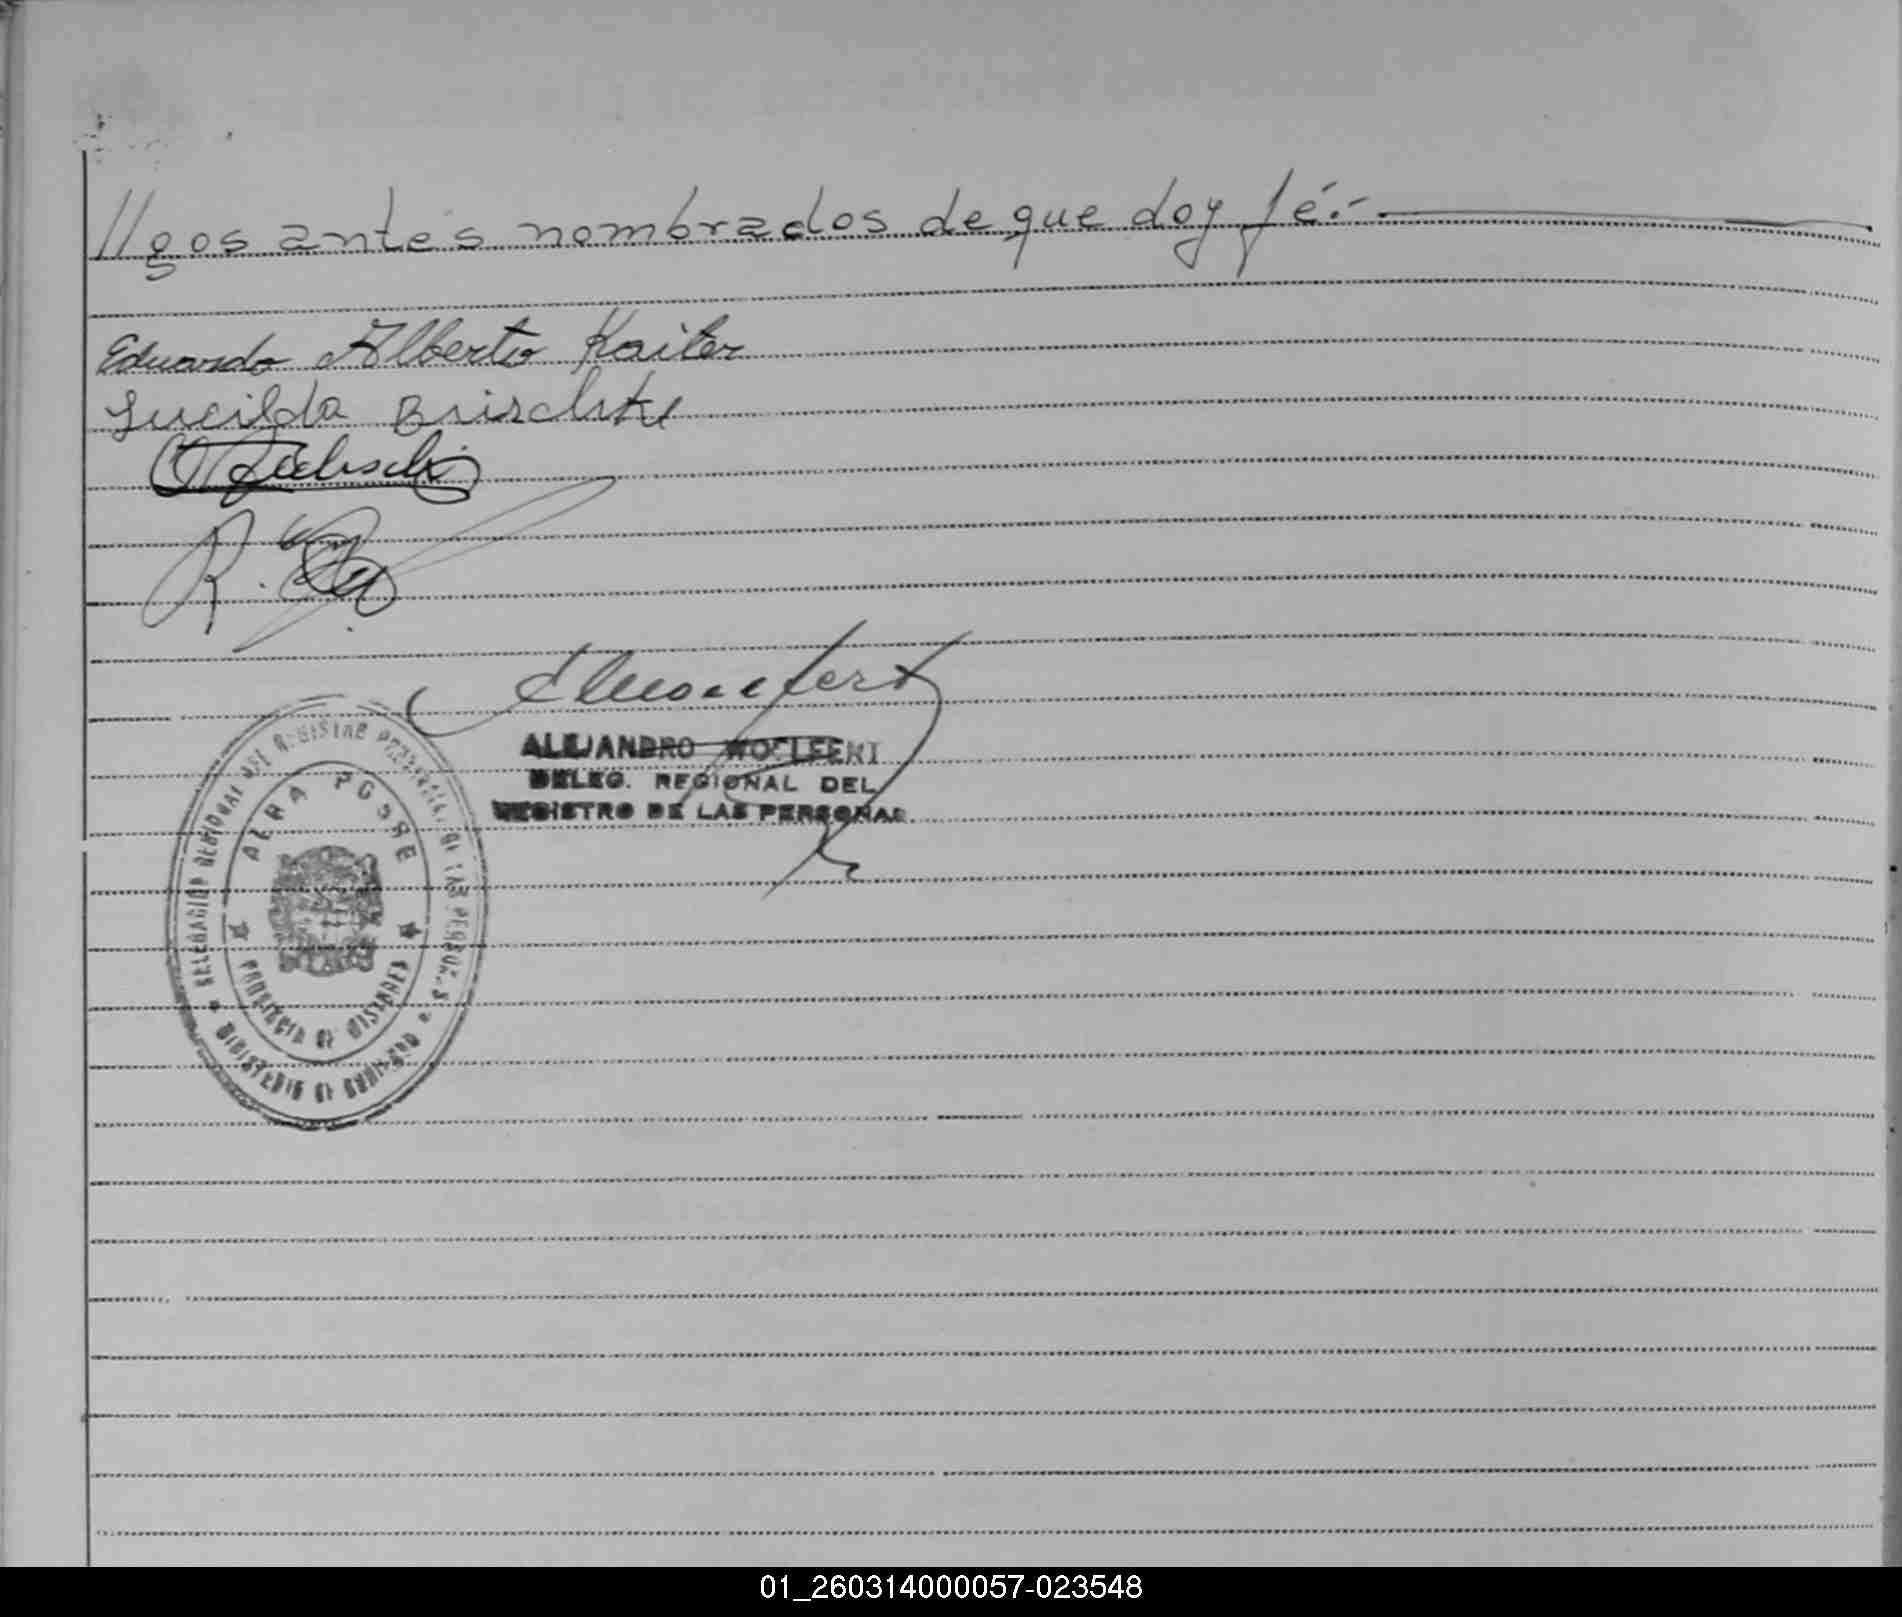 //gos antes nombrados de que doy fé.-
Eduardo Alberto Kaiter
Lucilda
R.
ALEJANDRO WOLFERT
DELEG. REGIONAL DEL
REGISTRO DE LAS PERSONAS.
DELEGACIÓN REGIONAL DEL REGISTRO PROVINCIAL DE LAS PERSONAS
ALBA POSSE
PROVINCIA DE MISIONES
MINISTERIO DE GOBIERNO
01_260314000057-023548